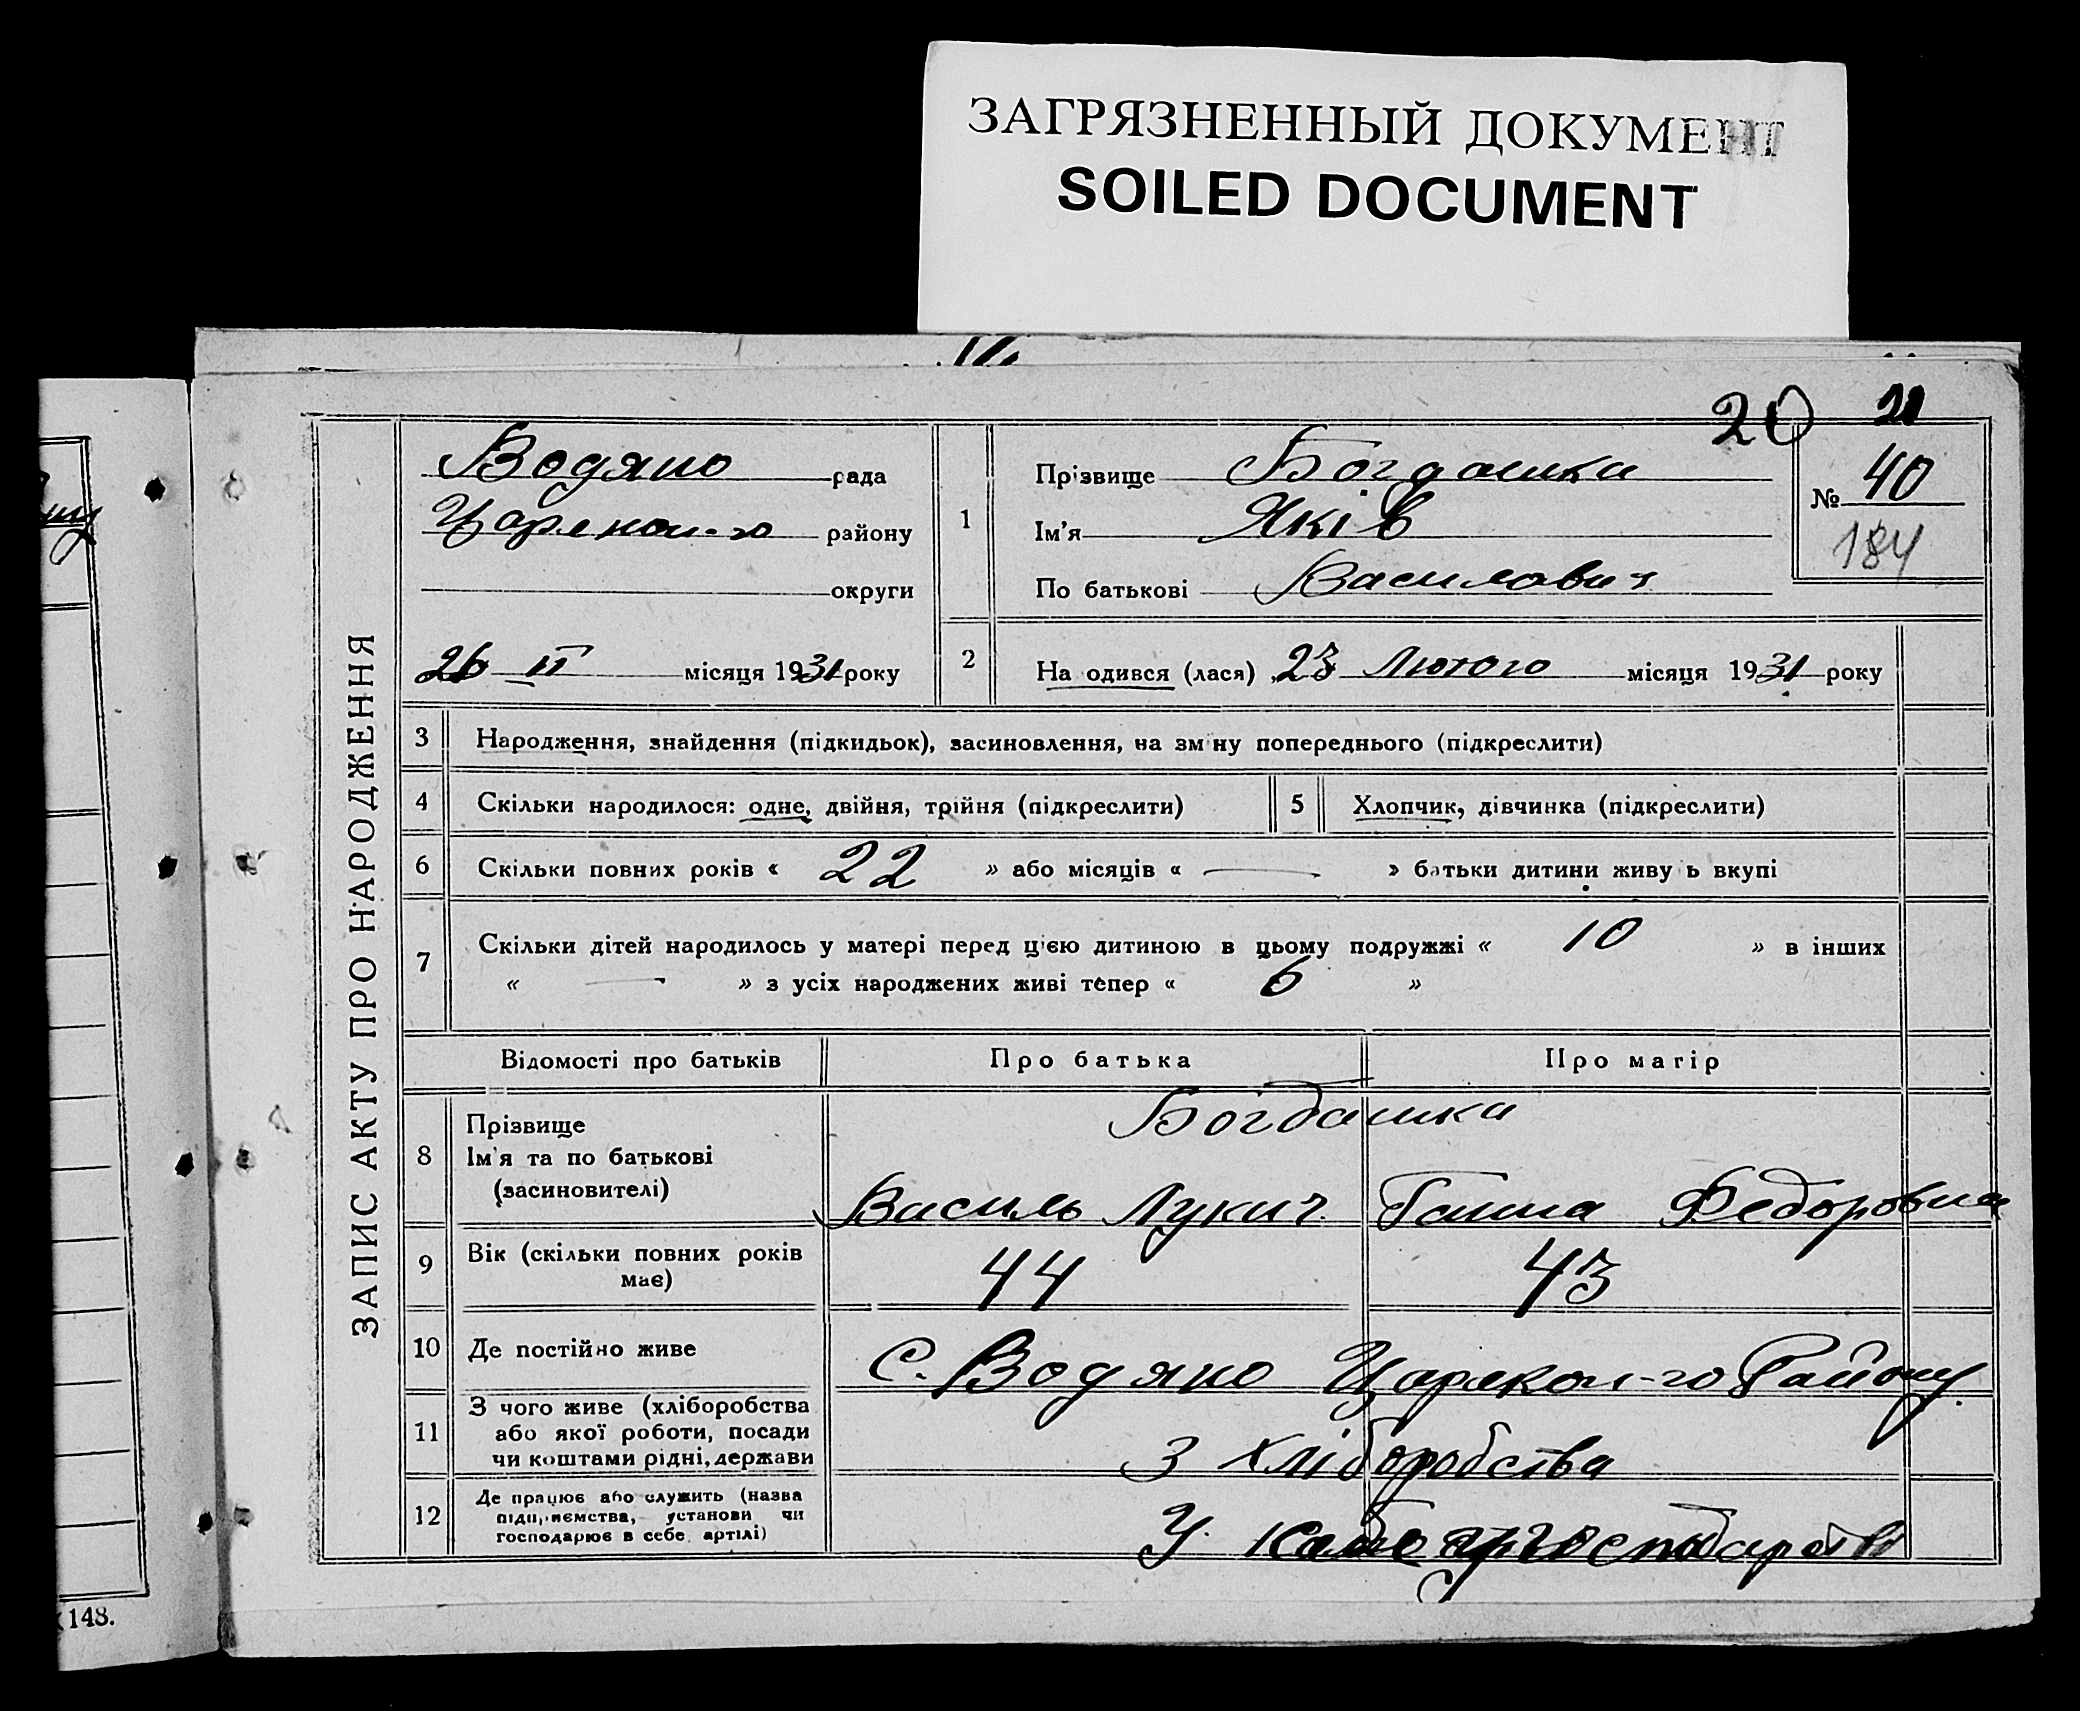 ЗАГРЯЗНЕННЫЙ ДОКУМЕНТ
SOILED DOCUMENT
20 21
ЗАПИС АКТУ ПРО НАРОДЖЕННЯ
Водяно рада
району
округи
26 II місяця 1931 року
1
Прізвище Богдашка
Ім'я Яків
По батькові Василович
№ 40
184
2 На одився (лася) 23 Лютого місяця 1931 року
3 Народження, знайдення (підкидьок), засиновлення, на зміну попереднього (підкреслити)
4 Скільки народилося: одне, двійня, трійня (підкреслити) 5 Хлопчик, дівчинка (підкреслити)
6 Скільки повних років « 22 » або місяців « — » батьки дитини живу ь вкупі
7 Скільки дітей народилось у матері перед цією дитиною в цьому подружжі « 10 » в інших
« — » з усіх народжених живі тепер « 6 »
Відомості про батьків Про батька Про матір
8 Прізвище
Ім'я та по батькові
(засиновителі)
Богдашка
Василь Лукич Ганна Федоровна
9 Вік (скільки повних років
має)
44 43
10 Де постійно живе С. Водяно Району
11 З чого живе (хліборобства
або якої роботи, посади
чи коштами рідні, держави
З хліборобства
12 Де працює або служить (назва
підприємства, установи чи
господарює в себе, артілі)
У
148.